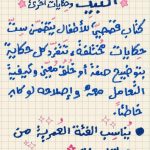 البيت وحكايات أخرى
كتاب قصصي للأطفال يتضمن ست
حكايات مختلفة، تنفرد كل حكاية
بتوضيح صفة أو خلق معين وكيفية
التعامل معه وإصلاحه لو كان
خاطئاً.
يناسب الفئة العمرية من